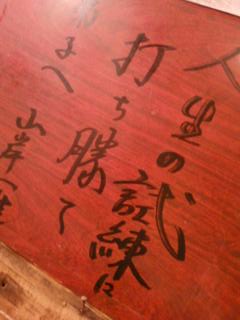 人生の式
試練に
打ち勝て
へ
山岸一雄